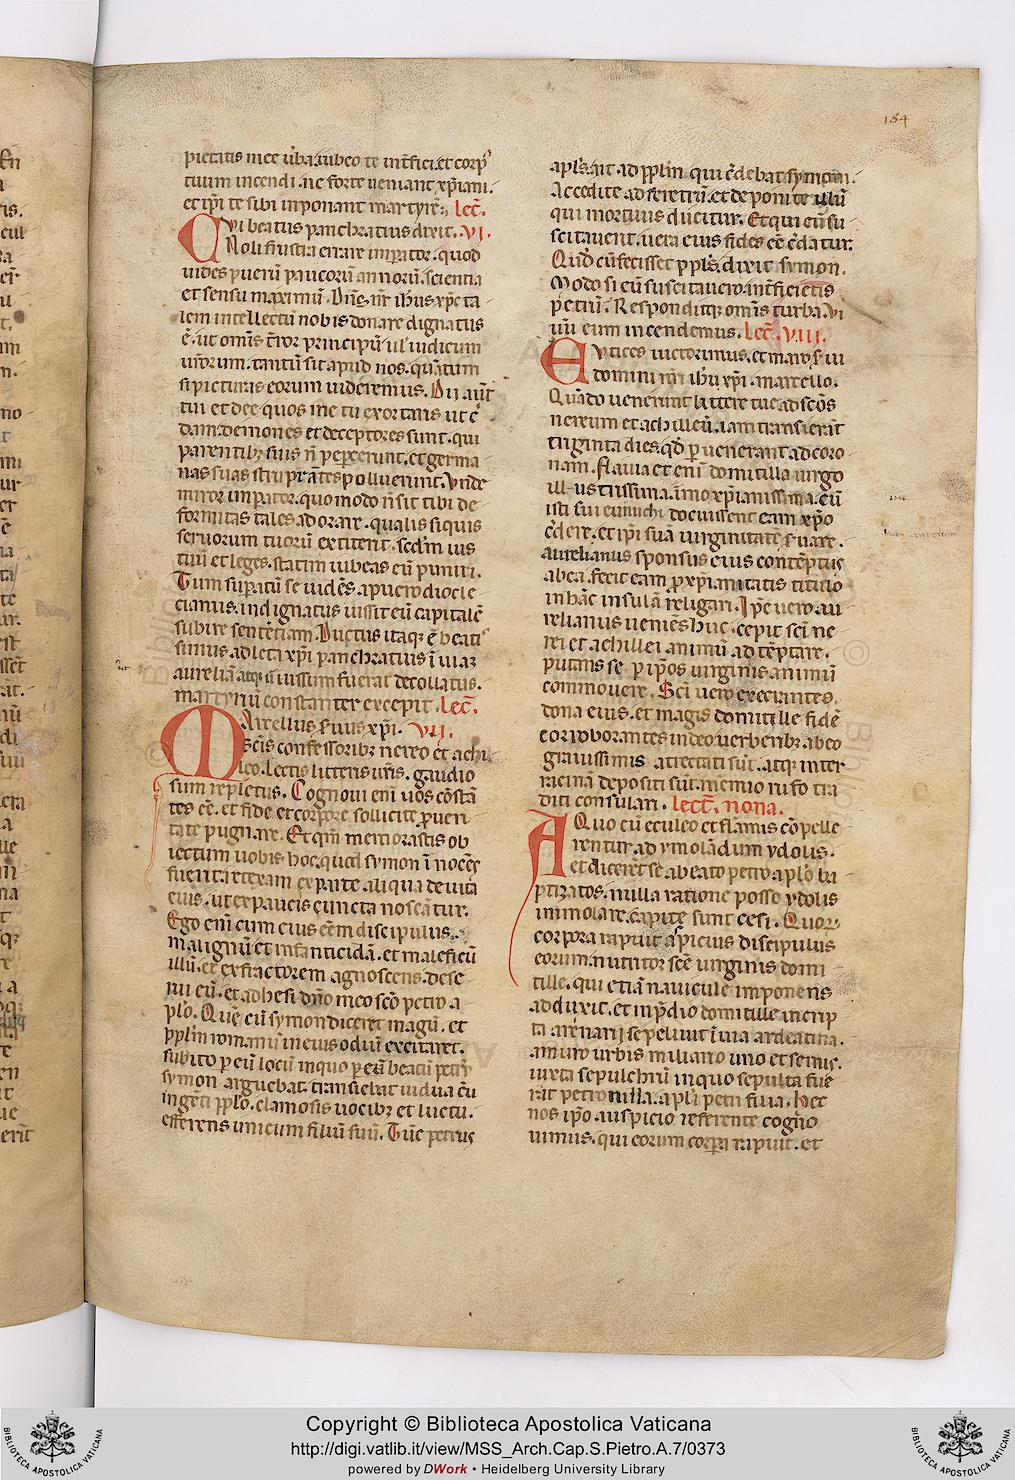 184
pietatis mee ũba. iubeo te int̃fici. et corp᷒
tuum incendi. ne forte ueniant xp̃iani.
et ip̃i te sibi inponant martyrẽ. lec̃.
Cvi beatus panchratius dixit. .VI.
Noli frustra errare imp̃ator. quod
uides puerũ paucorũ annorũ. scientia
et sensu maximũ. Dñs. nr̃ ih̃us xp̃c ta
lem intellectũ nobis donare dignatus
ẽ. ut omĩs t̃ror principũ ul̃ iudicum
ur̃orum. tantũ sit apud nos. quãtum
si picturas eorum uideremus. Dii aũt
tui et dee quos me tu exortaris ut c̃
dam. demones et deceptores sunt. qui
parentibꝫ suis ñ pepercerunt. et germa
nas suas stuprãtes polluerunt. Vnde
miror imp̃ator. quomodo ñ sit tibi de
formitas tales adorare. qualis siquis
seruorum tuorũ extiterit. scd̃m ius
tuũ et leges. statim iubeas eũ puniri.
Tum sup̃atũ se uidẽs. a puero diocle
cianus. indignatus iussit eũ capitalẽ
subire sentẽtiam. Ductus itaqꝫ ẽ beati
simus adleta xp̃i panchratius ĩ uia
aureliã atqꝫ ut iussum fuerat decollatus.
martyriũ constanter excepit. lec̃.
Marcellus s̃uus xp̃i. .VII.
sc̃is confessoribꝫ nereo et achil
leo. lectis litteris ur̃is. gaudio
sum repletus. Cognoui eni᷒ uos cõstã
tes eẽ. et fide et corpore sollicite p̱ ueri
tate pugnare. Et qm̃ memorastis ob
iectum uobis hoc. quod symon ĩ nocẽs
fuerit. retexam ex parte aliqua de uita
eius. ut ex paucis cuncta noscãtur.
Ego eni᷒ cum eius eẽm discipulus.
malignũ et infanticidã. et maleficũ
illũ. et exfractorem agnoscens. dese
rui eũ. et adhesi dño meo sc̃o petro a
pl̃o. Quẽ cũ symon diceret magũ. et
pp̃lm romanũ in eius odiũ excitaret.
subito p̱ eũ locũ in quo p̱ eũ beatũ petrũ
symon arguebat. transiebat uidua cũ
ingẽti pp̃lo. clamosis uocibꝫ et luctu.
efferens unicum filiũ suũ. Tũc petrus
apl̃s. ait ad pp̃lm qui c̃debat symoni.
Accedite ad feretrũ. et deponite illũ
qui mortuus ducitur. Et qui eũ su
scitauerit. uera eius fides eẽ c̃datur.
Quod cũ fecisset pp̃ls. dixit symon.
Modo si eũ suscitauero. int̃ficietis
petrũ. Responditqꝫ omĩs turba. Vi
uũ eum incendemus. Lec̃. .VIII.
Evtices uictorinus. et maro s̃ ui
domini nr̃i ih̃u xp̃i. marcello.
Quãdo uenerunt littere tue ad sc̃os
nereum et achilleũ. iam transierãt
triginta dies. qd̃ p̱uenerant ad coro
nam. Flauia et eni᷒ domitilla uirgo
illustrissima. imo xp̃ianissima. cũ
isti sui eunuchi docuissent eam xp̃o
c̃dere. et ip̃i suã uirginitatẽ s̃uare.
aurelianus sponsus eius contẽptus
ab ea. fecit eam p̱ xp̃ianitatis titulo
in hãc insulã religari. Ip̃e uero au
relianus ueniẽs huc. cepit sc̃i ne
rei et achillei animũ ad tẽptare.
putans se p̱ ip̃os uirginis animũ
commouere. Sc̃i uero execrantes
dona eius. et magis domitille fidẽ
corroborantes in deo uerberibꝫ ab eo
grauissimis atrectati sũt. atqꝫ inter
racinã depositi sũt. memio rufo tra
diti consulari. lect̃. nona.
A Quo cũ eculeo et flãmis cõpelle
rentur. ad ymolãdum ydolis.
et dicerẽt se a beato petro apl̃o ba
ptizatos. nulla ratione posse ydolis
immolare. capite sunt cesi. Quorꝫ
corpora rapuit aspicius discipulus
eorum. nutritor sc̃e uirginis domi
tille. qui etiã nauicule imponens
adduxit. et in p̃dio domitille in crip
ta arenarij sepeliuit ĩ uia ardeatina.
a muro urbis miliario uno et semis.
iuxta sepulchrũ in quo sepulta fue
rat petronilla. apl̃i petri filia. Hec
nos ip̃o auspicio referente cogno
uimus. qui eorum corp̃a rapuit. et
Copyright © Biblioteca Apostolica Vaticana
http://digi.vatlib.it/view/MSS_Arch.Cap.S.Pietro.A.7/0373
powered by DWork • Heidelberg University Library
BIBLIOTECA APOSTOLICA VATICANA
BIBLIOTECA APOSTOLICA VATICANA